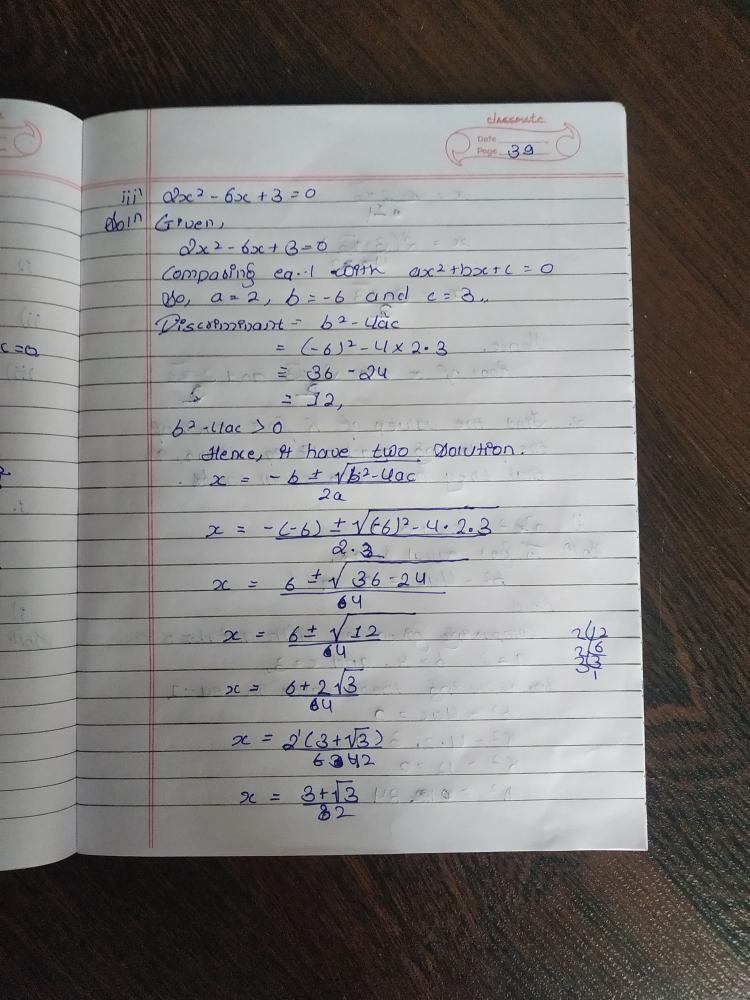 classmate
Date
Page 39
iii) 2x² - 6x + 3 = 0
Soln Given,
2x² - 6x + 3 = 0
Comparing eq. 1 with ax² + bx + c = 0
So, a = 2, b = -6 and c = 3,,
Discriminant = b² - 4ac
c = 0
= (-6)² - 4 × 2 · 3
= 36 - 24
= 12,
b² - 4ac > 0
Hence, it have two solution.
x = -b ± √b² - 4ac
2a
x = -(-6) ± √(-6)² - 4 · 2 · 3
2 · 2
x = 6 ± √36 - 24
4
x = 6 ± √12
4
2 12
2 6
3 3
1
x = 6 + 2√3
4
x = 2 (3 + √3)
4 2
x = 3 + √3
2